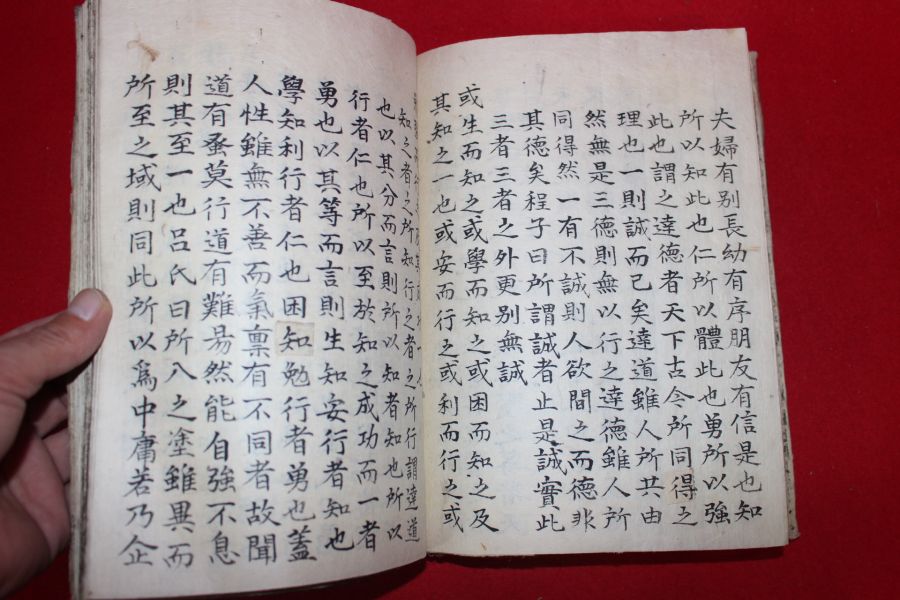 夫婦有別長幼有序朋友有信是也知
所以知此也仁所以體此也勇所以強
此也謂之達德者天下古今所同得之
理也一則誠而已矣達道雖人所共由
然無是三德則無以行之達德雖人所
同得然一有不誠則人欲間之而德非
其德矣程子曰所謂誠者止是誠實此
三者三者之外更別無誠
或生而知之或學而知之或困而知之及
其知之一也或安而行之或利而行之或
知之者之所知行之者之所行謂達道
也以其分而言則所以知者知也所以
行者仁也所以至於知之成功而一者
勇也以其等而言則生知安行者知也
學知利行者仁也困知勉行者勇也蓋
人性雖無不善而氣禀有不同者故聞
道有蚤莫行道有難易然能自強不息
則其至一也呂氏曰所入之塗雖異而
所至之域則同此所以爲中庸若乃企